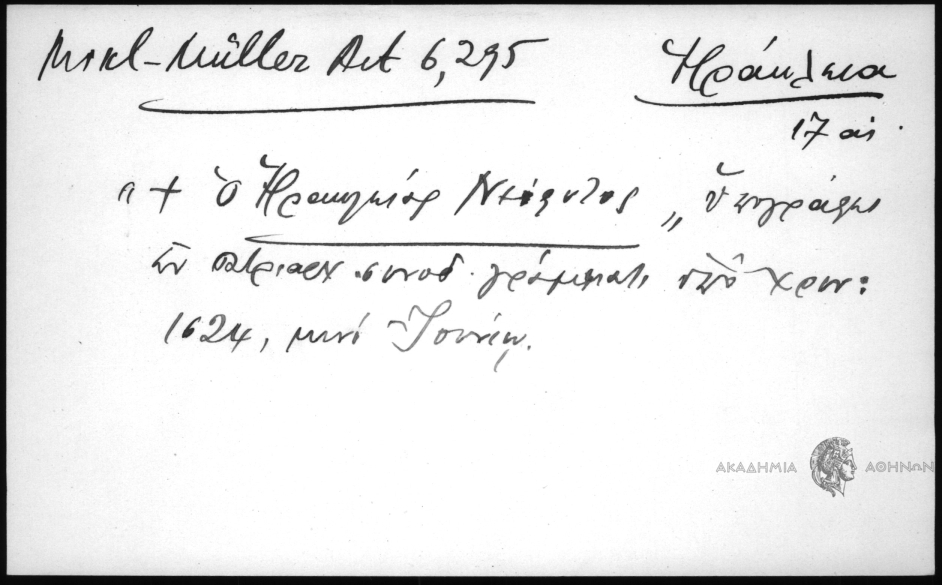 Mikl-Müller Act 6,295
Ἡράκλεια
17 αἰ.
"+ Ὁ Ἡρακλείας Νεόφυτος „ ὑπογράφει
ἐν πατριαρχ. συνοδ. γράμματι ὑπὸ χρον:
1624, μηνὶ Ἰουνίῳ.
ΑΚΑΔΗΜΙΑ ΑΘΗΝΩΝ